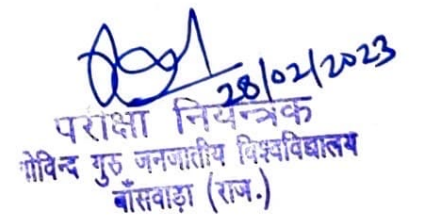 28/02/2023
परीक्षा नियन्त्रक
गोविन्द गुरु जनजातीय विश्वविद्यालय
बाँसवाड़ा (राज.)